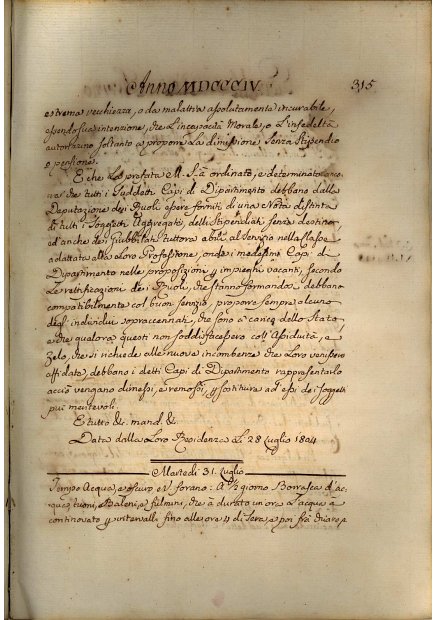 Anno MDCCCIV. 315
estrema vecchiezza, o da malattia assolutamente incurabile,
essendo sua intenzione, che l'incapacità Morale, o l'infedeltà
autorizzino soltanto a proporre la dimissione senza stipendio
o pensione.
E che la prefata M. S. à ordinato, e determinato
che tutti i suddetti Capi di Dipartimento debbano dalla
Deputazione dei Ruoli essere forniti di una Nota distinta
di tutti i Soggetti Aggregati, delli Stipendiati senza destino,
ed anche dei Giubbilati tuttora abili al servizio nella Classe
adattata alla Loro Professione, onde i medesimi Capi di
Dipartimento nelle proposizioni impieghi vacanti, secondo
Le rettificazioni dei Ruoli, che stanno formando, debbano
compatibilmente col buon servizio, proporre sempre alcuno
degl' individui sopraccennati, che sono a carico dello Stato,
e che qualora questi non soddisfacessero coll' Assiduità, e
Zelo, che si richiede alle nuove incombenze che Loro venissero
affidate, debbano i detti Capi di Dipartimento rappresentarlo
acciò vengano dimessi, e remossi, sostituiti ad essi dei Soggetti
più meritevoli.
E tutto &c. mand. &c.
Data dalla Loro Residenza Li 28 Luglio 1804
Martedì 31. Luglio
Tempo Acqua, e oscuro e V. forano: A ½ giorno Borrasca d'ac-
qua, tuoni, e Baleni, e fulmini, che à durato un'ora L'acqua à
continovato intervalli fino alle ore 4 di sera, e poi frà chiaro, e